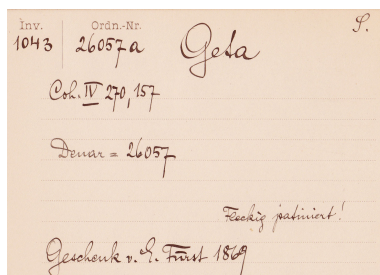 Inv. Ordn.-Nr. S.
1043 26057a Geta
Coh. IV 270, 157
Denar = 26057
Fleckig patiniert!
Geschenk v. E. Fürst 1869